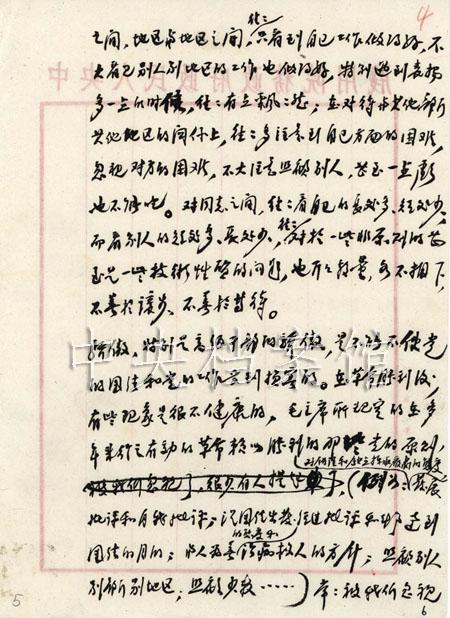 4
往往
之间，地区与地区之间，只看到自己工作做得好，不
大看见别人别地区的工作也做得好，特别遇到表扬
多一点的时候，往往有点飘飘然；在对待与其他部门
其他地区的问题上，往往多注意到自己方面的困难，
忽视对方的困难，不大注意照顾别人，甚至一点亏
也不能吃。对同志之间，往往看自己的长处多、短处少，
而看别人的短处多、长处少，往往对于一些非原则的甚
至是一些技术性质的问题，也斤斤较量，各不相下，
不善于让步、不善于等待。
骄傲，特别是高级干部的骄傲，是不能不使党
的团结和党的工作受到损害的。在革命胜利后，
有些现象是很不健康的，毛主席所规定的在多
年来行之有效的革命赖以胜利的那些党的原则，
对错误和缺点采取
被我们忽视了，很少有人提起了，（例如：发展
批评和自我批评；从团结出发经过批评和斗争达到
团结的目的；
的态度和
治病救人的方针；照顾别人
别部门别地区；照顾少数……）常常被我们忽视
中央档案馆
5
6